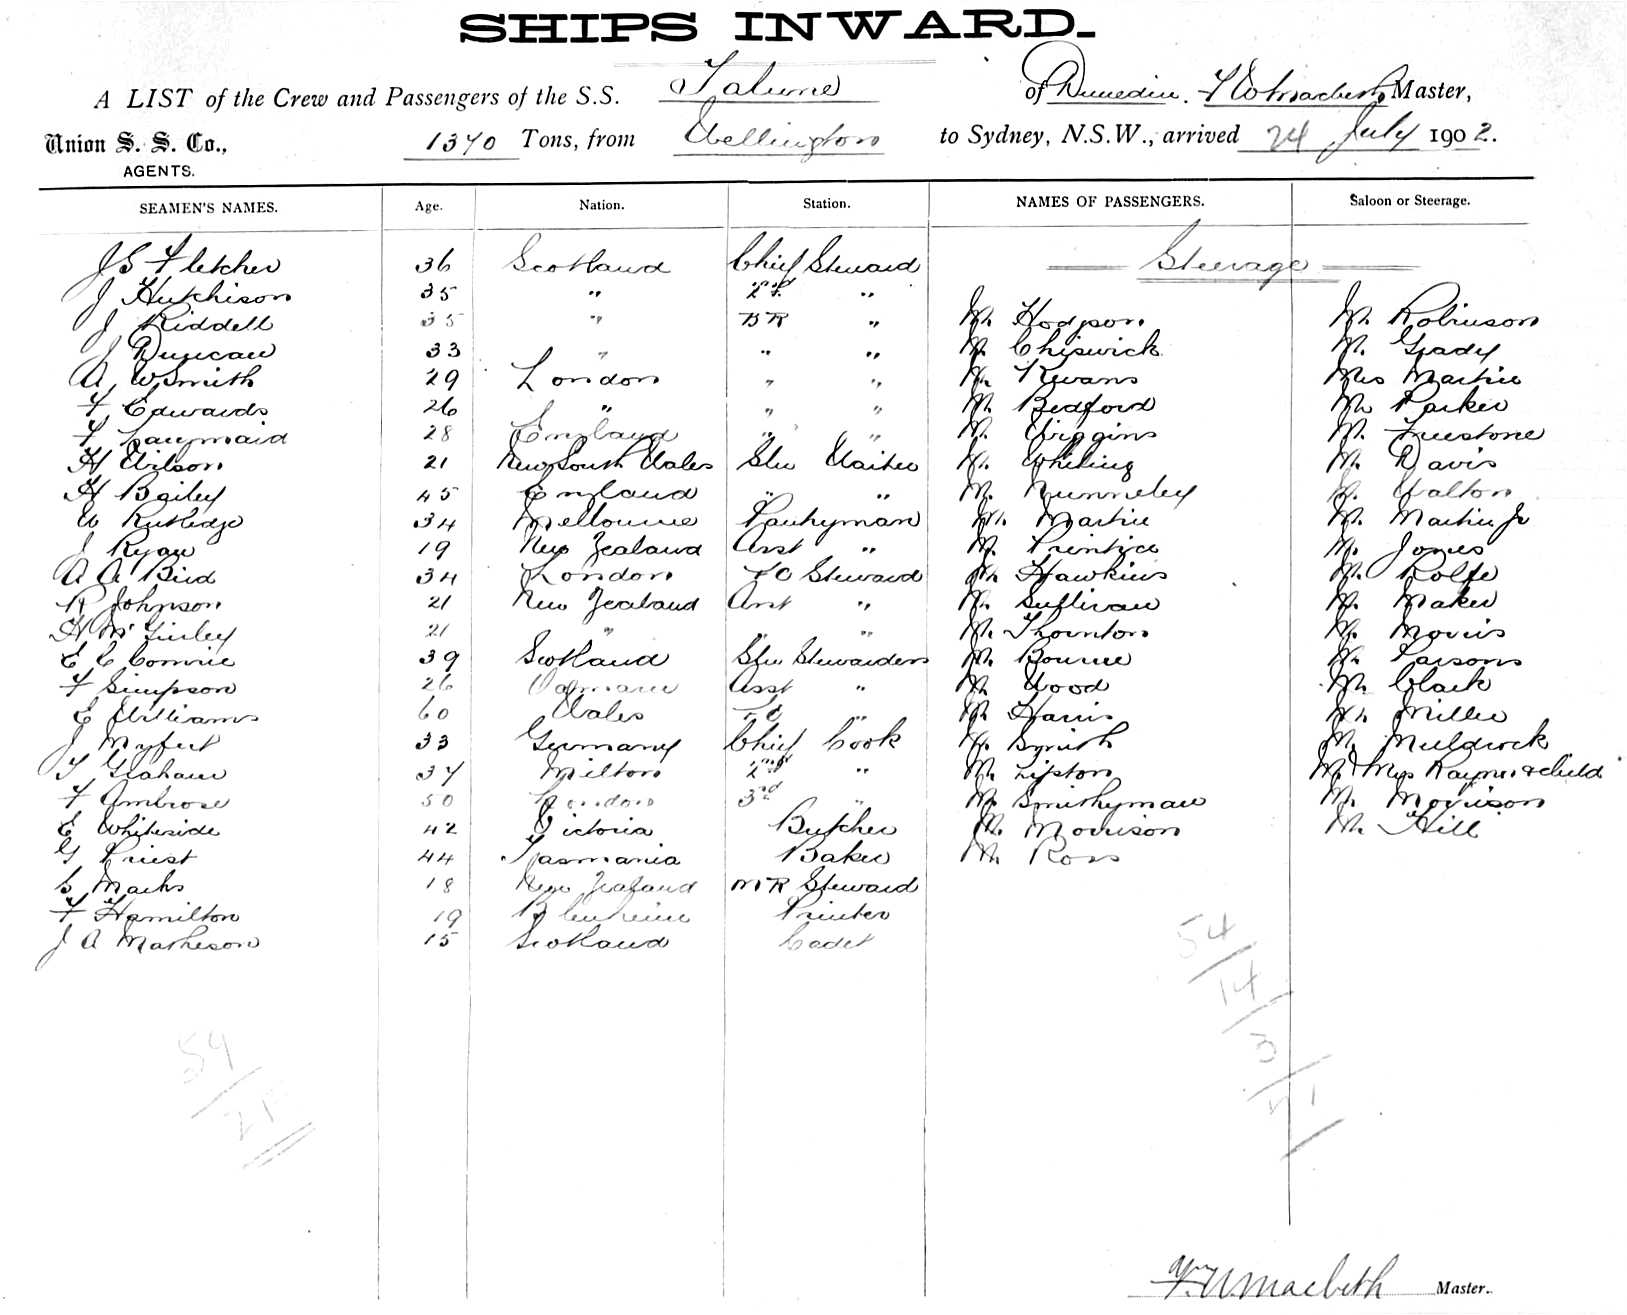 SHIPS INWARD.
A LIST of the Crew and Passengers of the S.S. Talune of Dunedin. Master,
Union S. S. Co., 1370 Tons, from Wellington to Sydney, N.S.W., arrived 24 July 1902.
AGENTS.
SEAMEN'S NAMES. Age. Nation. Station. NAMES OF PASSENGERS. Saloon or Steerage.
J S Fletcher 36 Scotland Chief Steward Steerage
J Hutchison 35 " 2nd "
J Riddell 35 " B R " Mr. Hodgson Mr. Robinson
J Duncan 33 " " " Mr. Chiswick Mr. Grady
A W Smith 29 London " " Mr. Kewans Mrs Martin
F Edwards 26 " " " Mr Bedford Mr Parker
F 28 England " " Mr. Wiggins Mr. Freestone
H Wilson 21 New South Wales Stw Waiter Mr. Whiting Mr. Davis
H Bailey 45 England " " Mr. Nunneley Mr. Walton
W Rutledge 34 Melbourne Pantryman Mr. Martin Mr. Martin Jr
J Ryan 19 New Zealand Asst " Mr. Prentice Mr. Jones
A A Bird 34 London F C Steward Mr. Hawkins Mr. Rolfe
R Johnson 21 New Zealand Asst " Mr. Sullivan Mr. Maker
H McGinley 21 " " Mr. Thornton Mr. Morris
E C Comrie 39 Scotland Stw Stewardess Mr. Bourne Mr. Parsons
F Simpson 26 Asst " Mr Wood Mr. Clark
E Williams 60 Wales F C " Mr Harris Mr. Miller
J 33 Germany Chief Cook Mr. Smith Mr. Muldrock
T Graham 37 Milton 2nd " Mr. Lipton Mr & Mrs Rayner & child
F Ambrose 50 London 3rd " Mr. Smithyman Mr. Morrison
E Whiteside 42 Victoria Butcher Mr. Morrison Mr. Hill
G Priest 44 Tasmania Baker Mr. Ross
S Marks 18 New Zealand M R Steward
F Hamilton 19 Blenheim Printer
J A Matheson 15 Scotland Cadet
54
14
3
71
59
21
Macbeth Master.